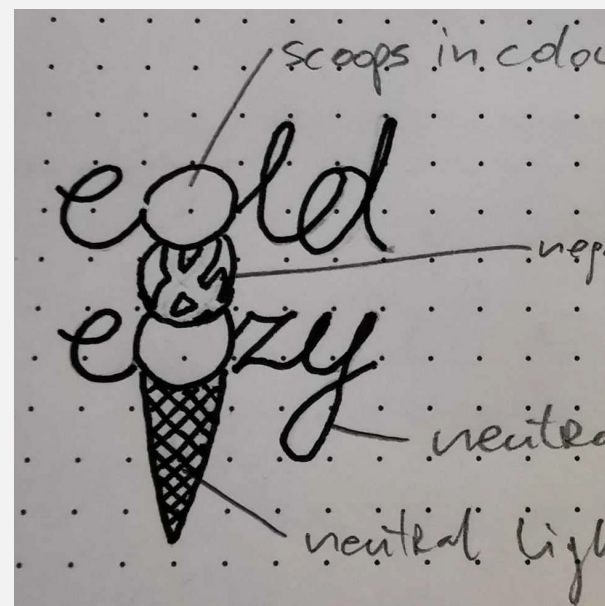 scoops in colou
cold
&
neg
cozy
neutra
neutral ligh